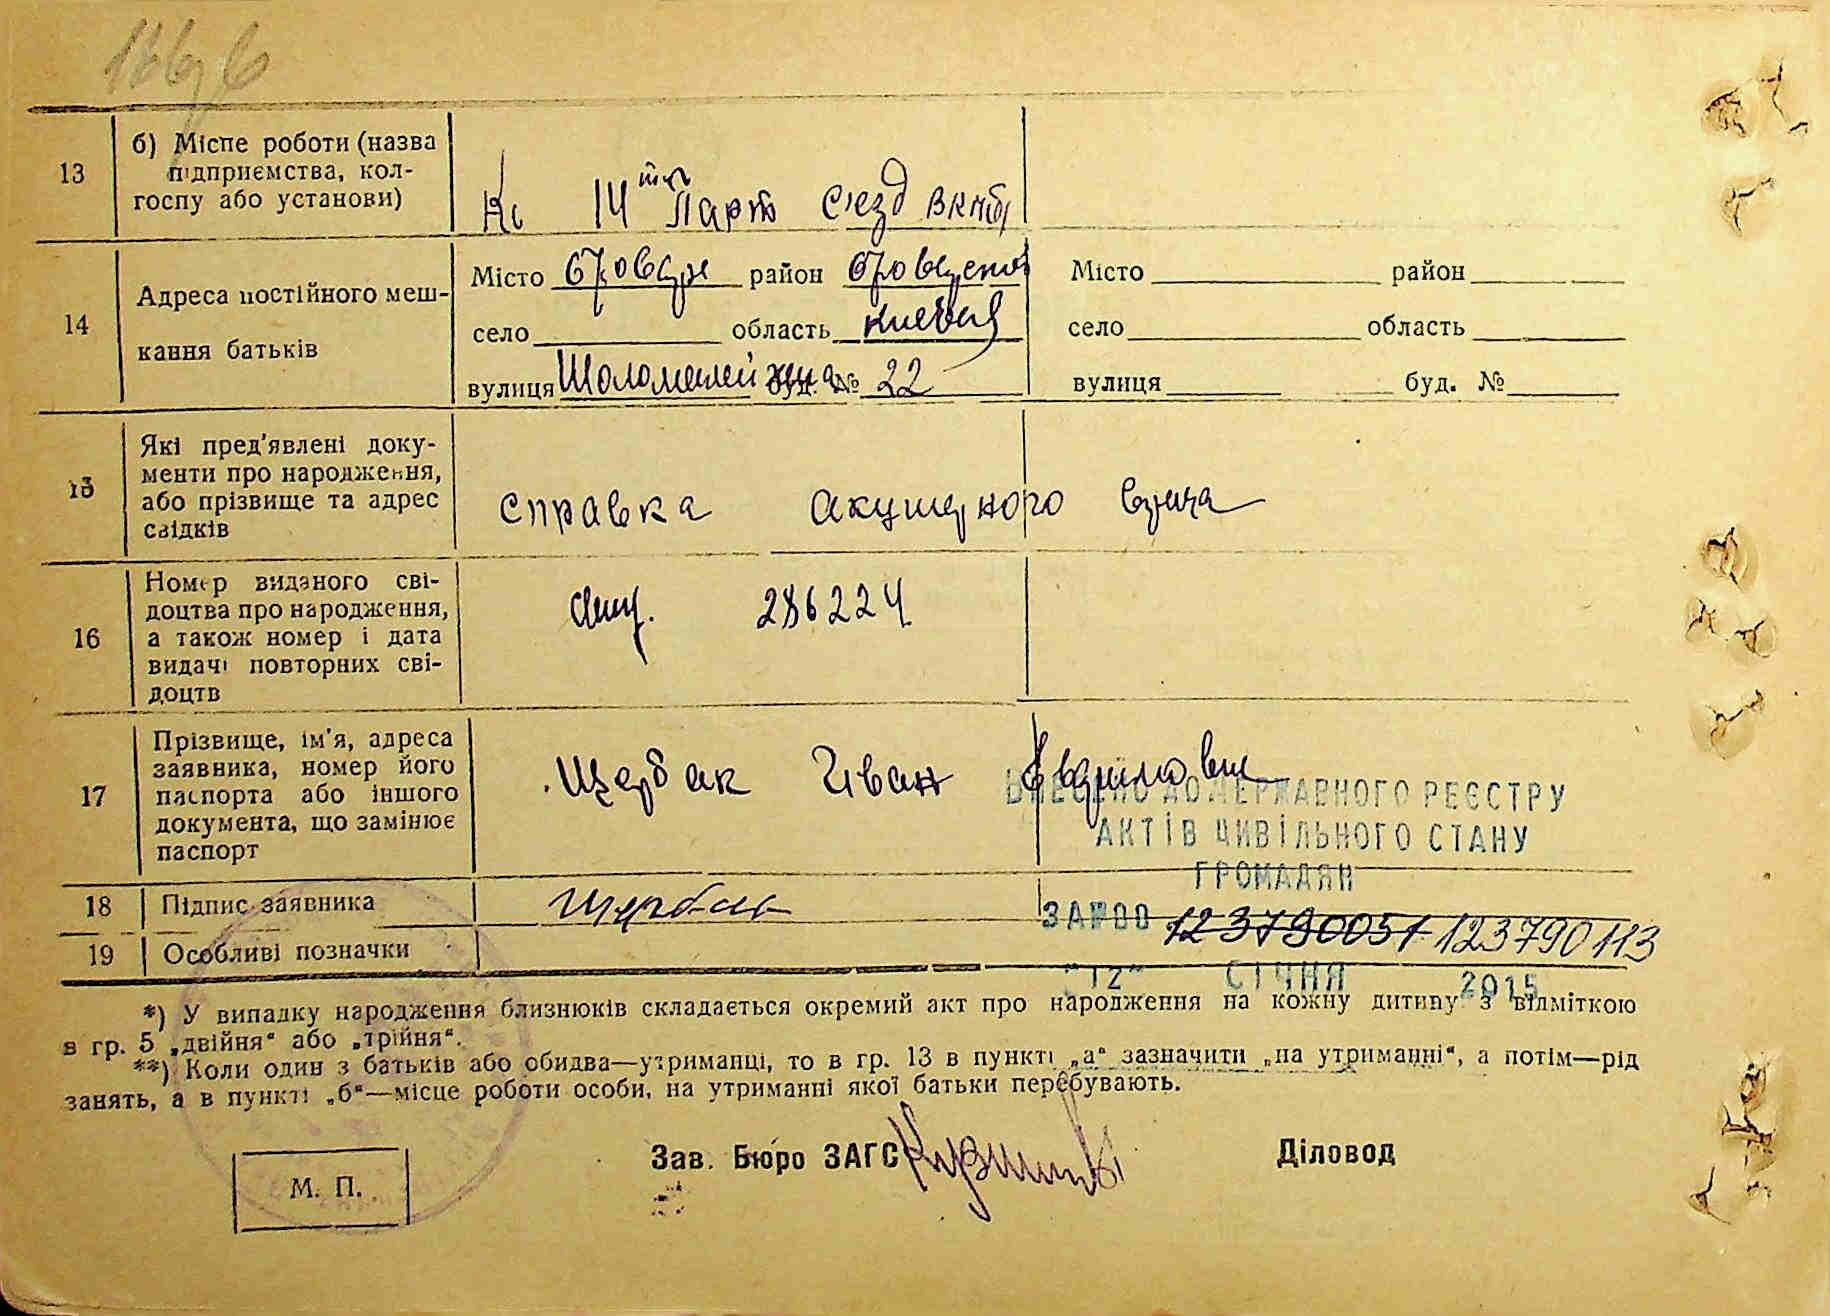 13
б) Місце роботи (назва
підприємства, кол-
госпу або установи)
14 Парт С'езд ВКПб
14
Адреса постійного меш-
кання батьків
Місто Бровари район
село область
вулиця буд. № 22
Місто район
село область
вулиця буд. №
15
Які пред'явлені доку-
менти про народження,
або прізвище та адрес
свідків
справка акушерного врача
16
Номер виданого сві-
доцтва про народження,
а також номер і дата
видачі повторних сві-
доцтв
286224
17
Прізвище, ім'я, адреса
заявника, номер його
паспорта або іншого
документа, що замінює
паспорт
Щербак Іван
ВНЕСЕНО ДО ДЕРЖАВНОГО РЕЄСТРУ
АКТІВ ЦИВІЛЬНОГО СТАНУ
ГРОМАДЯН
18
Підпис заявника
Щербак
ЗА №00 123790051 123790113
19
Особливі позначки
"12" СІЧНЯ 2015
*) У випадку народження близнюків складається окремий акт про народження на кожну дитину з відміткою
в гр. 5 „двійня“ або „трійня“.
**) Коли один з батьків або обидва—утриманці, то в гр. 13 в пункті „а“ зазначити „на утриманні“, а потім—рід
занять, а в пункті „б“—місце роботи особи, на утриманні якої батьки перебувають.
Зав. Бюро ЗАГС
Діловод
М. П.